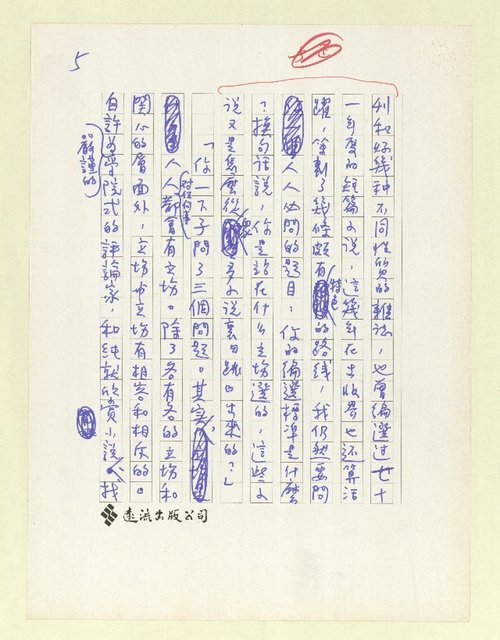 5
利和好幾种不同性质的雜誌，也曾編選过七十
一年度的短篇小說，這幾年在出版界也还算活
躍，筆劃了幾條頗有特色的路线，我仍然要問
人人必問的题目：你的編選標準是什麼
？換句话說，你是站在什么立場選的，這些小
说又是怎麼從眾多小说裏「跳」出來的？」
「你一下子問了三個問題。其实，
人人都會对任何事有立場。除了各有各的立場和
関心的層面外，立場与立場有相容和相斥的。
自許为嚴謹的學院式的評論家，和純就欣賞小說人找
遠流出版公司